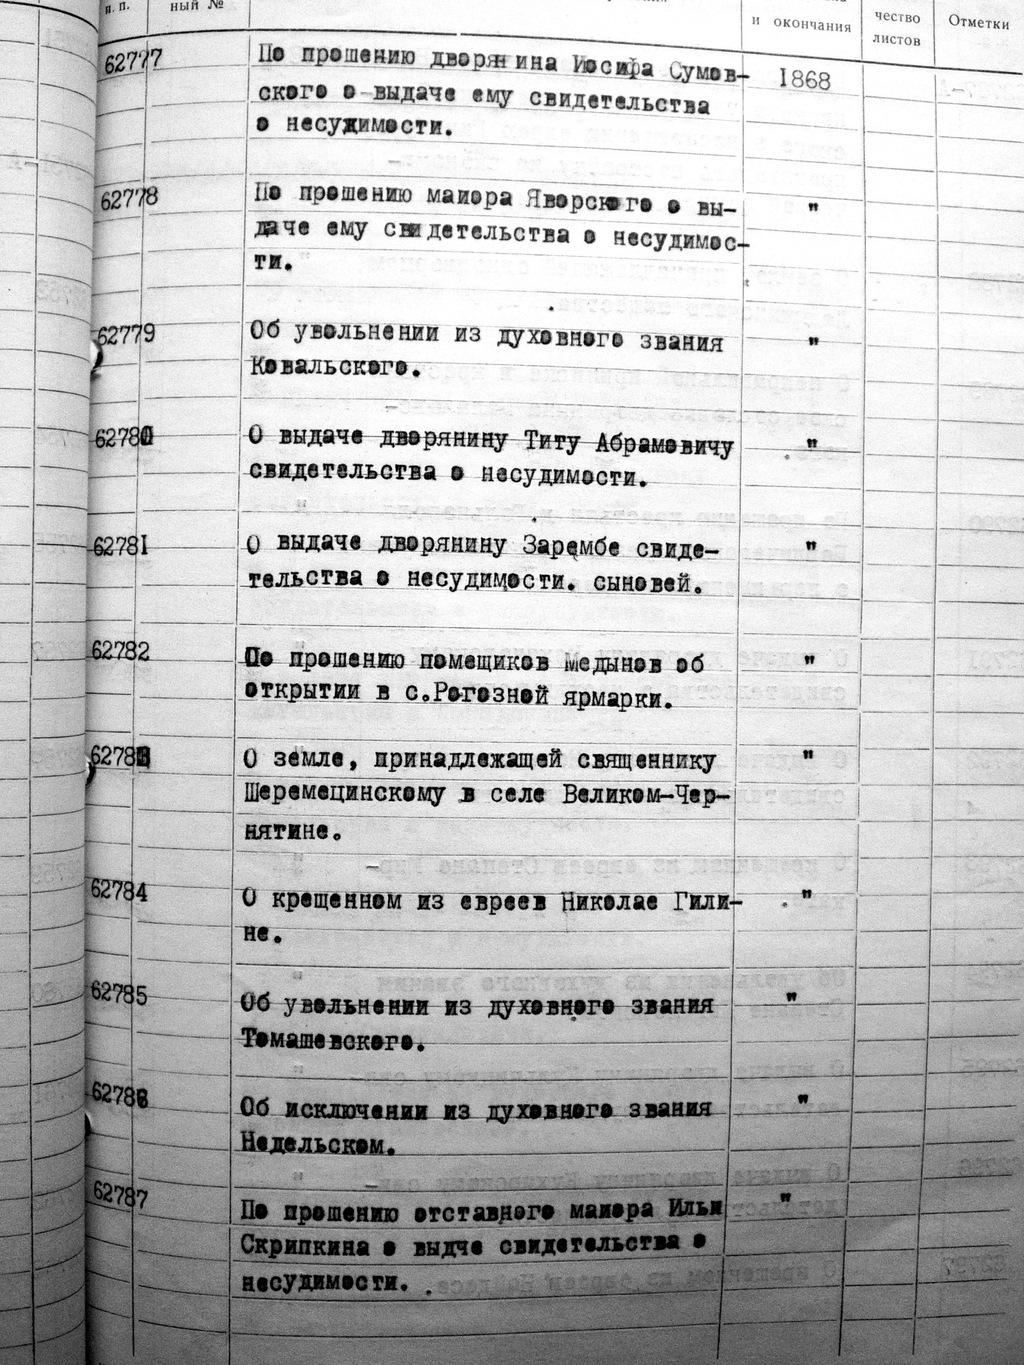 п.п.
ный №
и окончания
чество
листов
Отметки
62777
По прошению дворянина Иосифа Сумов-
1868
ского о выдаче ему свидетельства
о несудимости.
62778
По прошению маиора Яворского о вы-
"
даче ему свидетельства о несудимос-
ти.
62779
Об увольнении из духовного звания
"
Ковальского.
62780
О выдаче дворянину Титу Абрамовичу
"
свидетельства о несудимости.
62781
О выдаче дворянину Зарембе свиде-
"
тельства о несудимости. сыновей.
62782
По прошению помещиков Медынов об
"
открытии в с.Рогозной ярмарки.
62783
О земле, принадлежащей священнику
"
Шеремецинскому в селе Великом-Чер-
нятине.
62784
О крещенном из евреев Николае Гили-
"
не.
62785
Об увольнении из духовного звания
"
Томашевского.
62786
Об исключении из духовного звания
"
Недельском.
62787
По прошению отставного маиора Ильи
"
Скрипкина о выдче свидетельства о
несудимости.